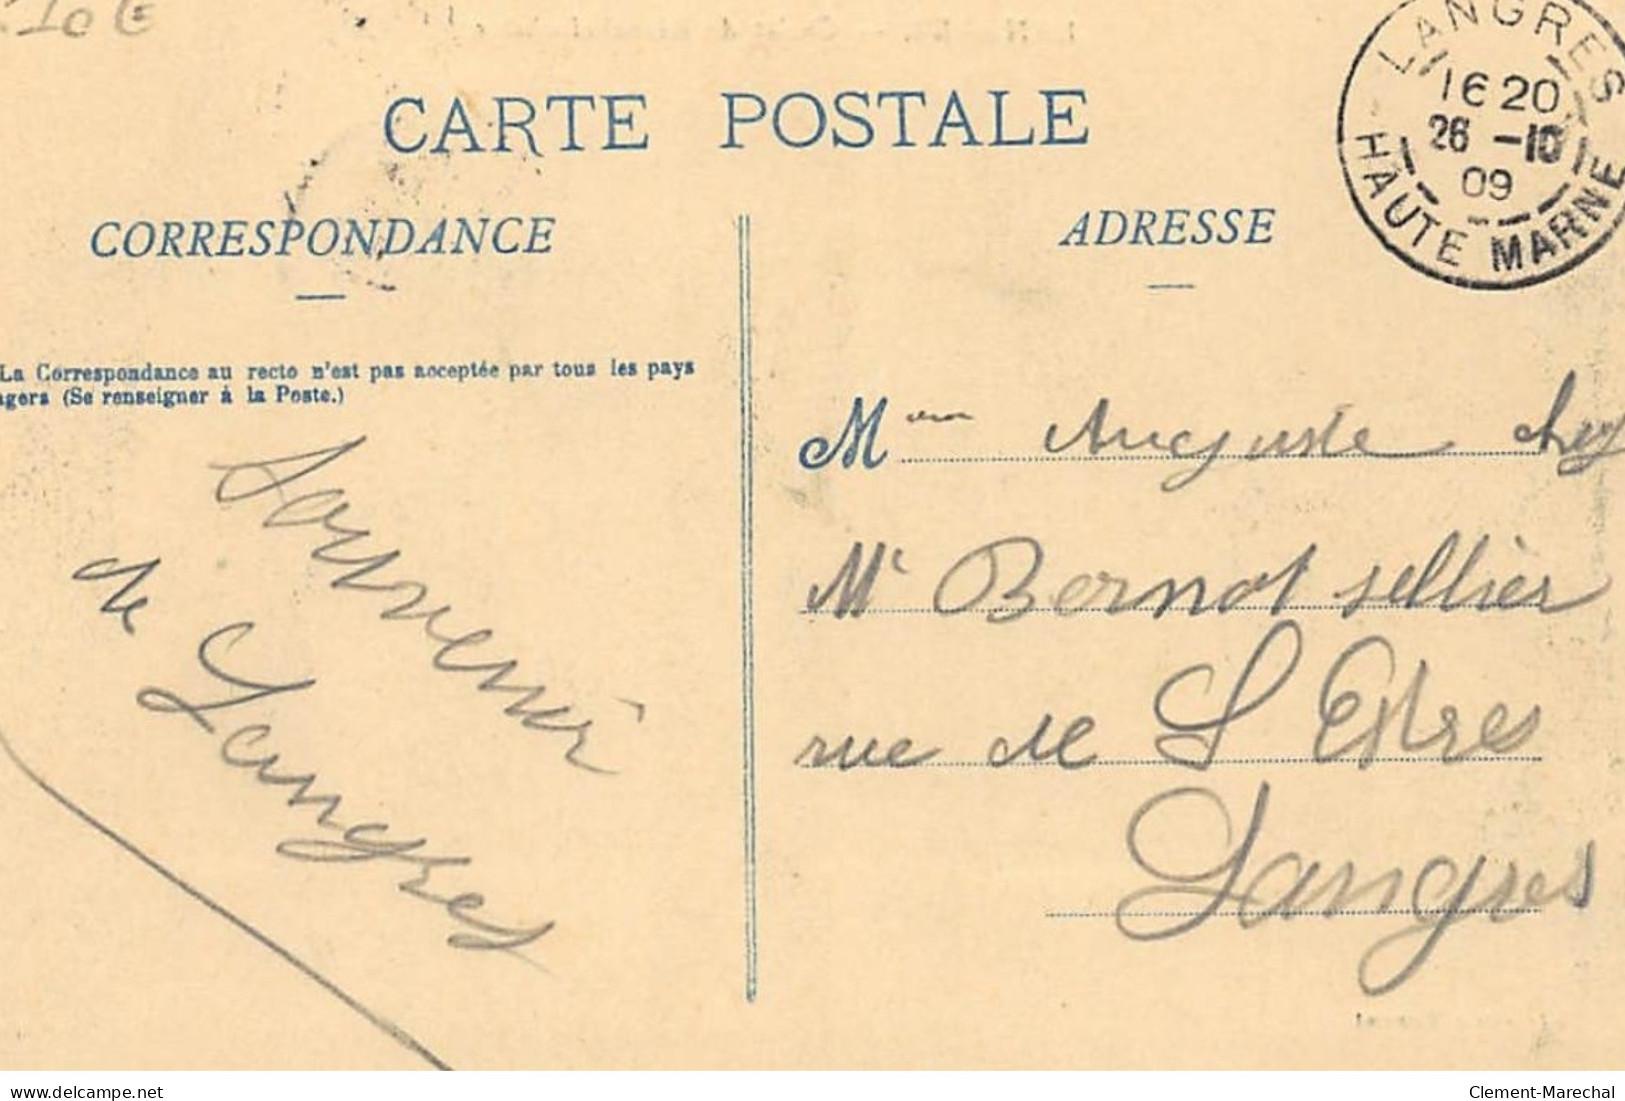 10 €
CARTE POSTALE
LANGRES
16 20
26 -10
09
HAUTE MARNE
CORRESPONDANCE
ADRESSE
La Correspondance au recto n'est pas acceptée par tous les pays
agers (Se renseigner à la Poste.)
Souvenir
de Langres
Mme Auguste
Mr Bernot sellier
rue de L Estres
Langres
www.delcampe.net
Clement-Marechal